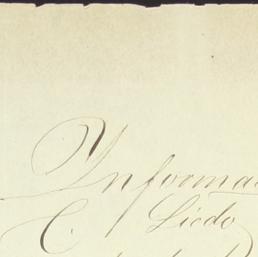 Informa
C. Licdo